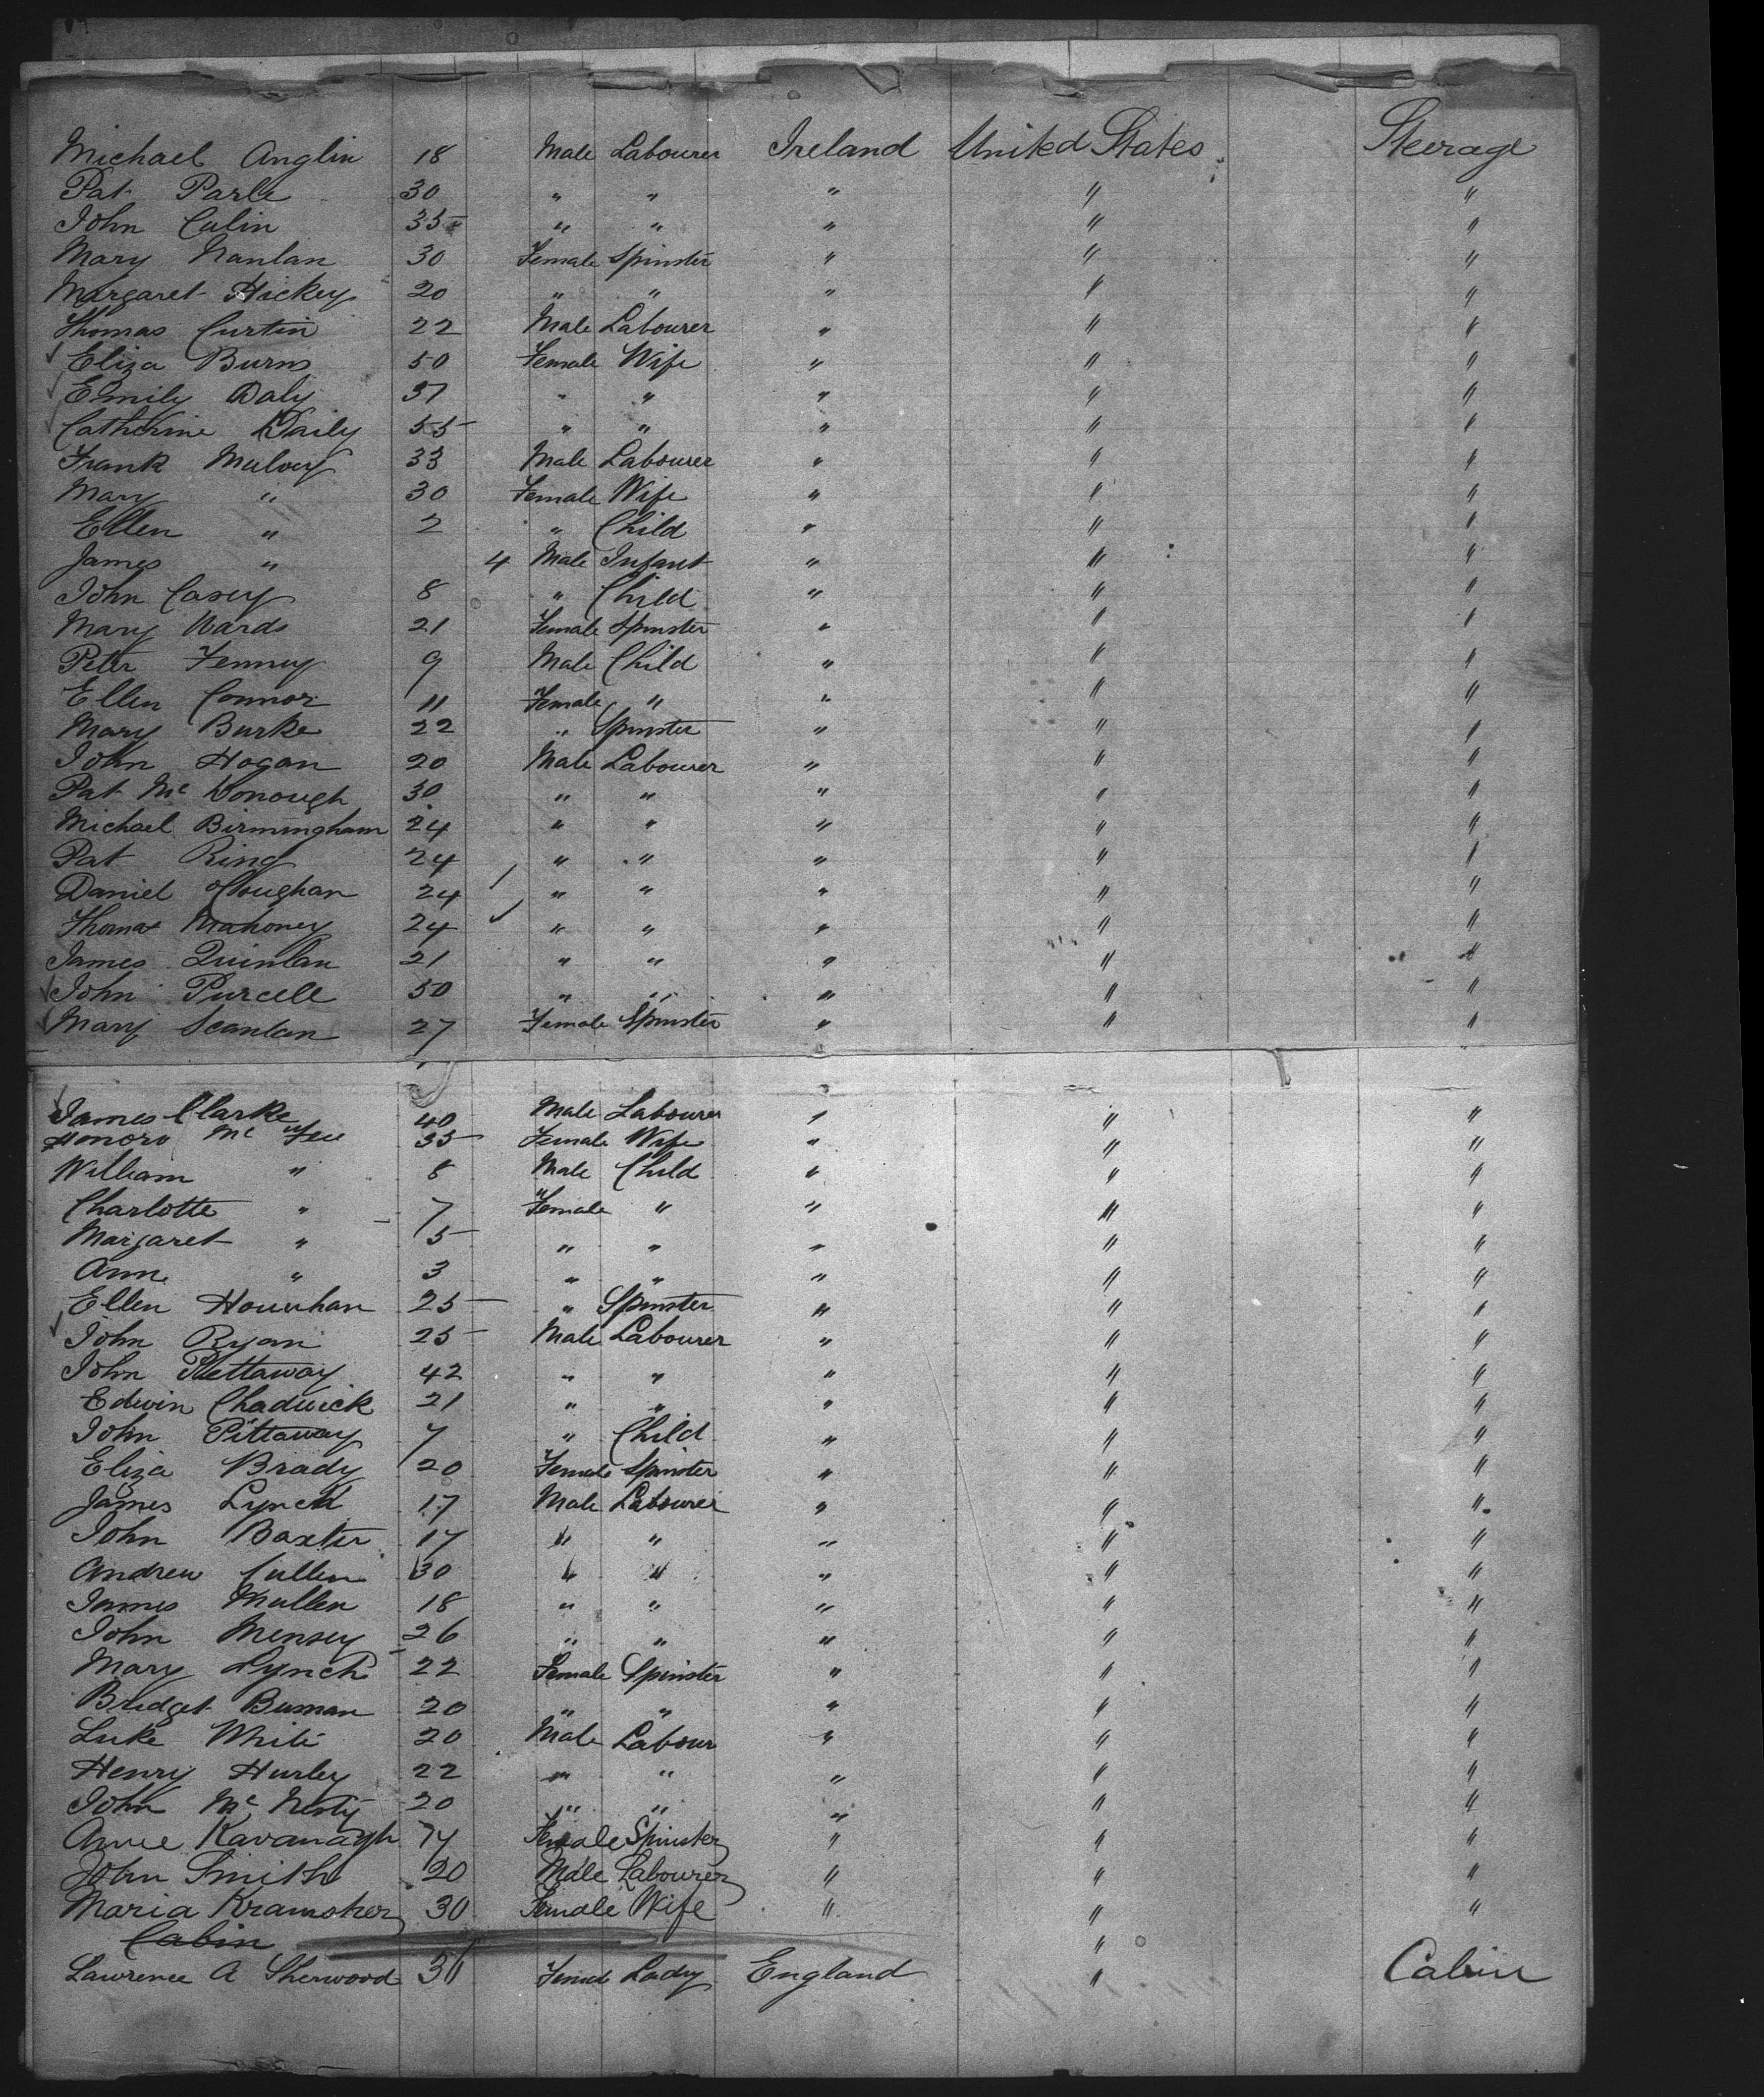 Michael Anglin 18 Male Labourer Ireland United States Steerage
Pat Parle 30 " " " " "
John Culin 35 " " " " "
Mary Nanlan 30 Female Spinster " " "
Margaret Hickey 20 " " " " "
Thomas Curtin 22 Male Labourer " " "
Eliza Burns 50 Female Wife " " "
Emily Daly 37 " " " " "
Catherine Daily 55 " " " " "
Frank Mulvey 33 Male Labourer " " "
Mary " 30 Female Wife " " "
Ellen " 2 " Child " " "
James " 4 Male Infant " " "
John Casey 8 " Child " " "
Mary Wards 21 Female Spinster " " "
Peter Fenney 9 Male Child " " "
Ellen Connor 11 Female " " " "
Mary Burke 22 " Spinster " " "
John Hogan 20 Male Labourer " " "
Pat Mc Donough 30 " " " " "
Michael Birmingham 24 " " " " "
Pat Ring 24 " " " " "
Daniel Cloughan 24 " " " " "
Thomas Mahoney 24 " " " " "
James Quinlan 21 " " " " "
John Purcell 50 " " " " "
Mary Scanlan 27 Female Spinster " " "
James Clarke 40 Male Labourer " " "
Honora Mc 35 Female Wife " " "
William " 8 Male Child " " "
Charlotte " 7 Female " " " "
Margaret " 5 " " " " "
Ann " 3 " " " " "
Ellen Hounhan 25 " Spinster " " "
John Ryan 25 Male Labourer " " "
John Pettaway 42 " " " " "
Edwin Chadwick 21 " " " " "
John Pittaway 7 " Child " " "
Eliza Brady 20 Female Spinster " " "
James Lynch 17 Male Labourer " " "
John Baxter 17 " " " " "
Andrew Cullen 30 " " " " "
James Mullen 18 " " " " "
John Mensey 26 " " " " "
Mary Lynch 22 Female Spinster " " "
Bridget Buman 20 " " " " "
Luke White 20 Male Labour " " "
Henry Hurley 22 " " " " "
John Mc Nesty 20 " " " " "
Annie Kavanagh 74 Female Spinster " " "
John Smith 20 Male Labourer " " "
Maria Kramsher 30 Female Wife " " "
Cabin "
Lawrence A Sherwood 36 Female Lady England " Cabin